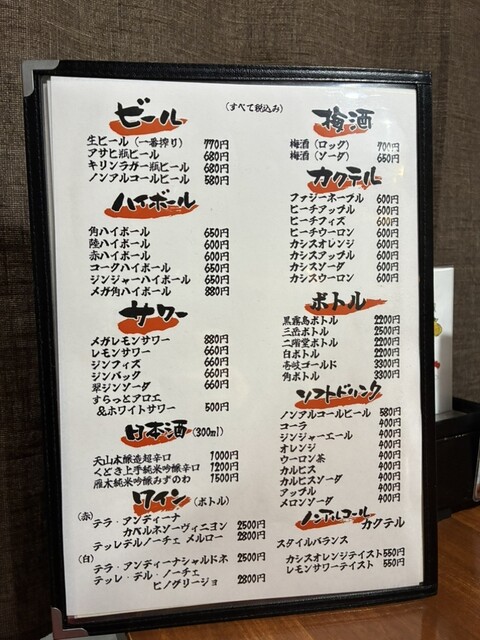 (すべて税込み)
ビール
生ビール (一番搾り) 770円
アサヒ瓶ビール 680円
キリンラガー瓶ビール 680円
ノンアルコールビール 580円
ハイボール
角ハイボール 650円
陸ハイボール 600円
赤ハイボール 600円
コークハイボール 650円
ジンジャーハイボール 650円
メガ角ハイボール 880円
サワー
メガレモンサワー 880円
レモンサワー 660円
ジンフィズ 660円
ジンバック 660円
翠ジンソーダ 660円
すらっとアロエ
&ホワイトサワー 500円
日本酒 (300ml)
天山本醸造超辛口 1000円
くどき上手純米吟醸辛口 1200円
雁木純米吟醸みずのわ 1500円
ワイン (ボトル)
(赤) テラ・アンディーナ
カベルネソーヴィニヨン 2500円
テッレデルノーチェ メルロー 2800円
(白) テラ・アンディーナシャルドネ 2500円
テッレ・デル・ノーチェ
ピノグリージョ 2800円
梅酒
梅酒 (ロック) 700円
梅酒 (ソーダ) 650円
カクテル
ファジーネーブル 600円
ピーチアップル 600円
ピーチフィズ 600円
ピーチウーロン 600円
カシスオレンジ 600円
カシスアップル 600円
カシスソーダ 600円
カシスウーロン 600円
ボトル
黒霧島ボトル 2200円
三岳ボトル 2500円
二階堂ボトル 2200円
白ボトル 2200円
壱岐ゴールド 3300円
角ボトル 3300円
ソフトドリンク
ノンアルコールビール 580円
コーラ 400円
ジンジャーエール 400円
オレンジ 400円
ウーロン茶 400円
カルピス 400円
カルピスソーダ 400円
アップル 400円
メロンソーダ 400円
ノンアルコールカクテル
スタイルバランス
カシスオレンジテイスト 550円
レモンサワーテイスト 550円